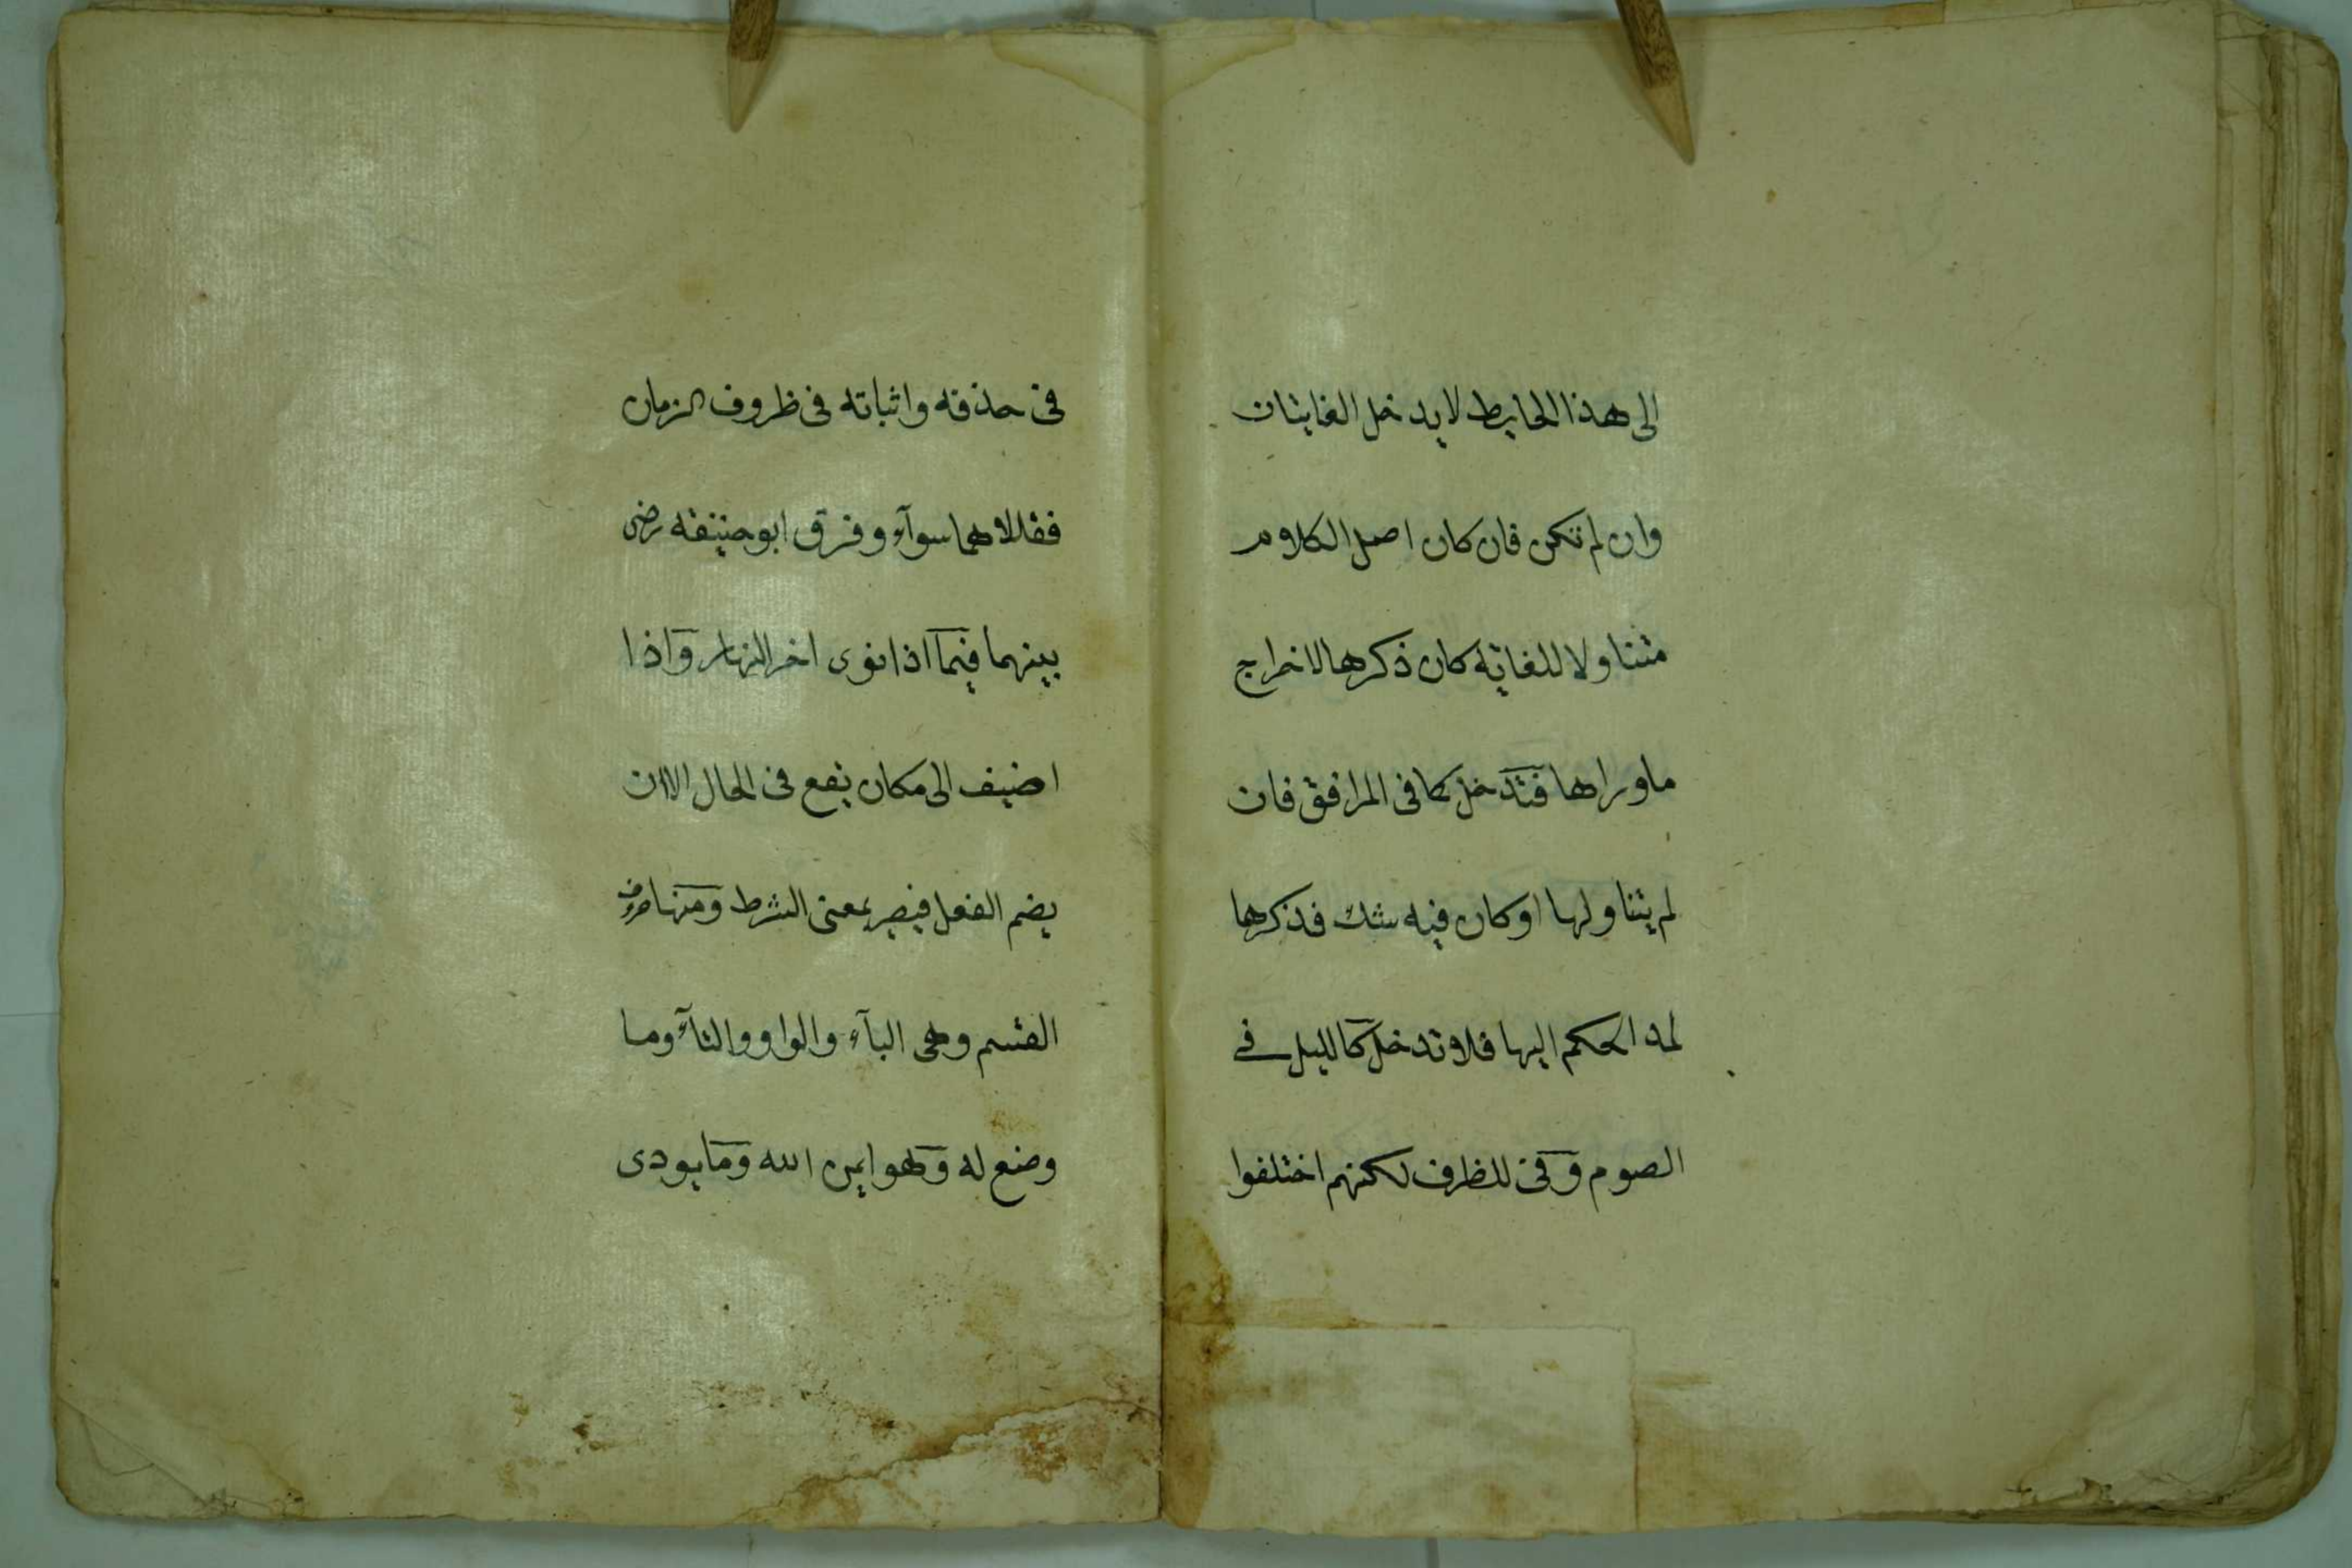 الى هذا الحايط لا يدخل الغايتان
وان لم تكن فان كان اصل الكلام
متناولا للغاية كان ذكرها لاخراج
ماوراها فتدخل كما فى المرافق فان
لم يتناولها او كان فيه شك فذكرها
لمد الحكم اليها فلا تدخل كالليل فے
الصوم وفى للظرف لكنهم اختلفوا
فى حذفه واثباته فى ظروف الزمان
فقالا هما سوآء وفرق ابو حنيفه رضى
بينهما فيما اذا نوى اخر النهار واذا
اضيف الى مكان يقع فى الحال الا ان
يضم الفعل فيصير بمعنى الشرط ومنها حروف
القسم وهى البآء والواو والتآء وما
وضع له وهو ايمن الله وما يودى